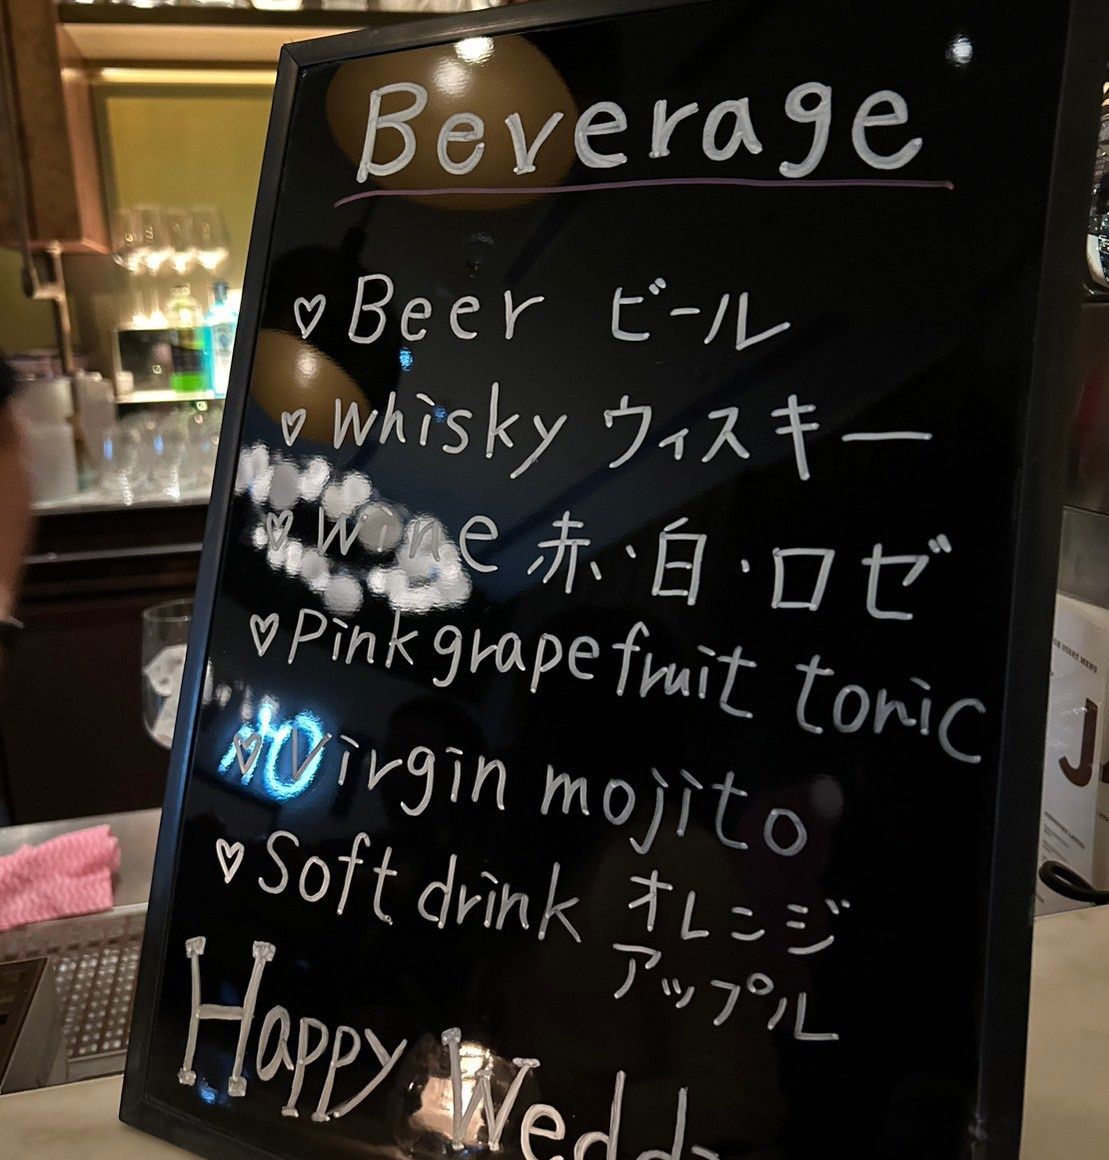 Beverage
♡ Beer ビール
♡ Whisky ウィスキー
♡ Wine 赤・白・ロゼ
♡ Pink grapefruit tonic
♡ Virgin mojito
♡ Soft drink オレンジ
アップル
Happy Weddi